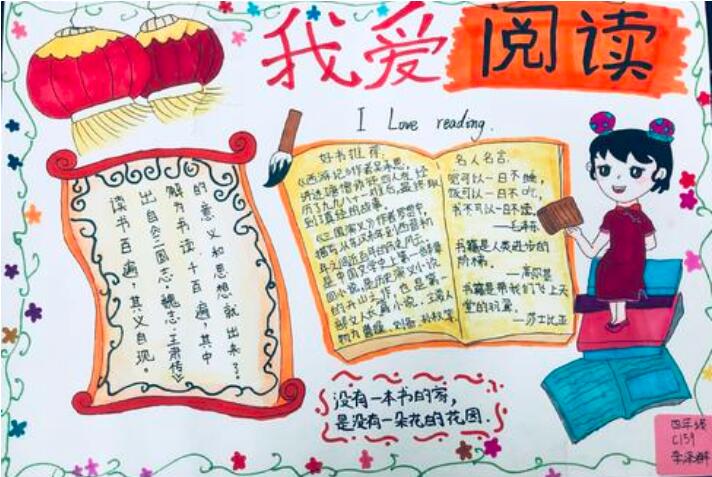 我爱阅读
I Love reading.
读书百遍，其义自现。
出自《三国志·魏志·王肃传》
解为书读十百遍，其中
的意义和思想就出来了。
好书推荐:
《西游记》作者吴承恩,
讲述唐僧师徒四人,经
历了九九八十一难后,最终取
到了真经的故事。
《三国演义》作者罗贯中,
描写从东汉末年到西晋初
年之间近百年的历史风云。
是中国文学史上第一部章
回小说,是历史演义小说
的开山之作,也是第一
部文人长篇小说。主要人
物为曹操、刘备、孙权等.
名人名言.
觉可以一日不睡,
饭可以一日不吃,
书不可以一日不读。
——毛泽东
书籍是人类进步的
阶梯。
——高尔基
书籍是带我们飞上天
堂的羽翼。
——莎士比亚
没有一本书的家,
是没有一朵花的花园.
四年级
C159